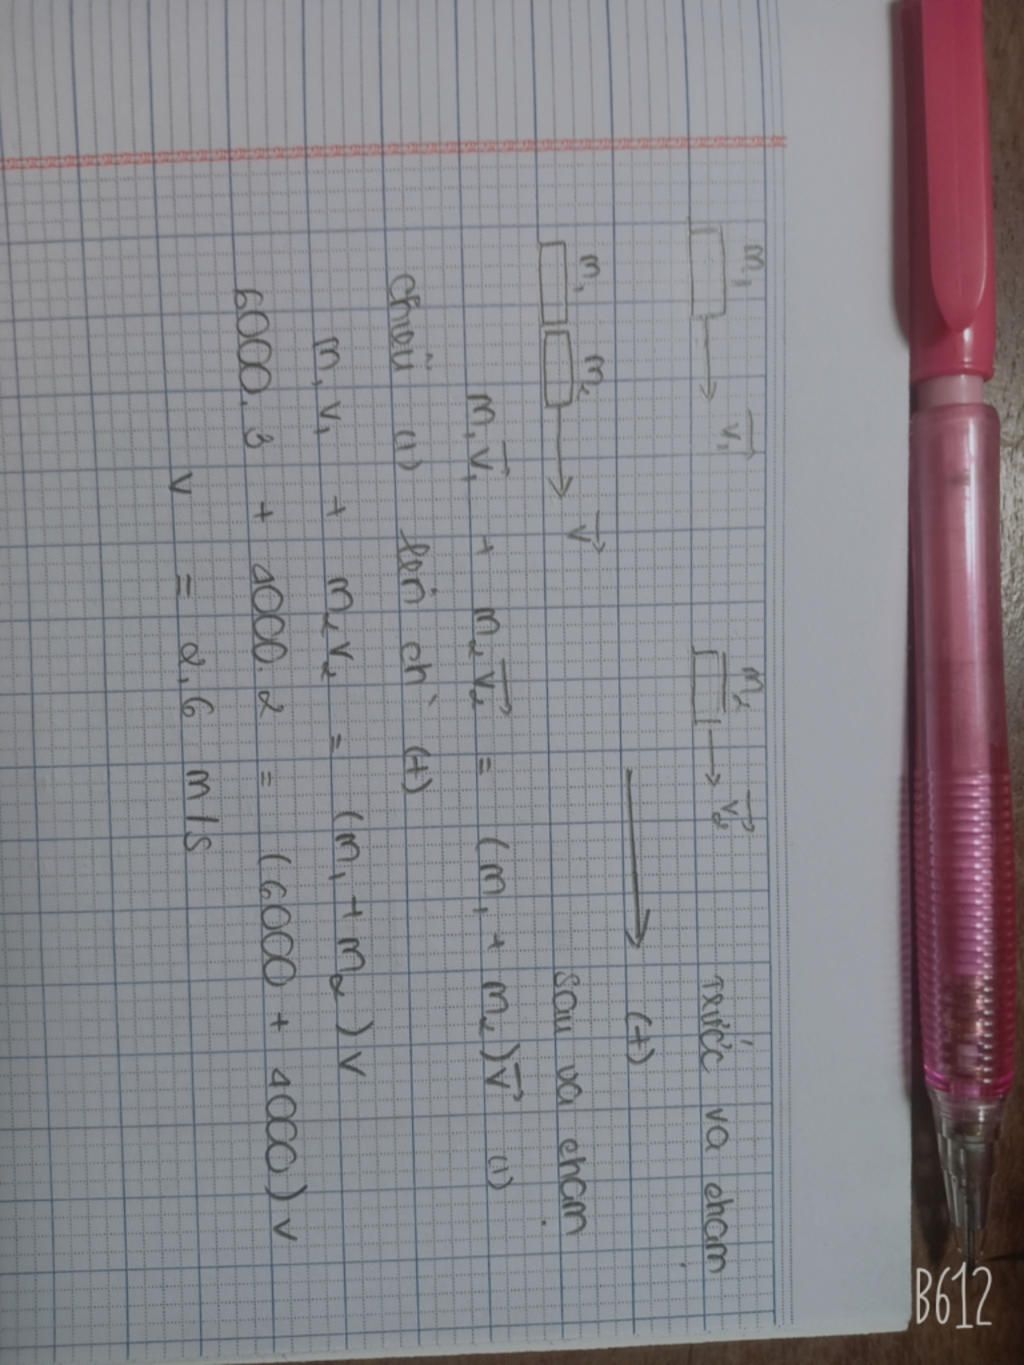 m₁ m₂
v₁→ v₂→ trước va chạm
(+)
m₁ m₂ sau va chạm
v→
m₁v₁→ + m₂v₂→ = (m₁ + m₂)v→ (1)
chiếu (1) lên ch` (+)
m₁v₁ + m₂v₂ = (m₁ + m₂)v
6000.3 + 4000.2 = (6000 + 4000)v
v = 2,6 m/s
B612